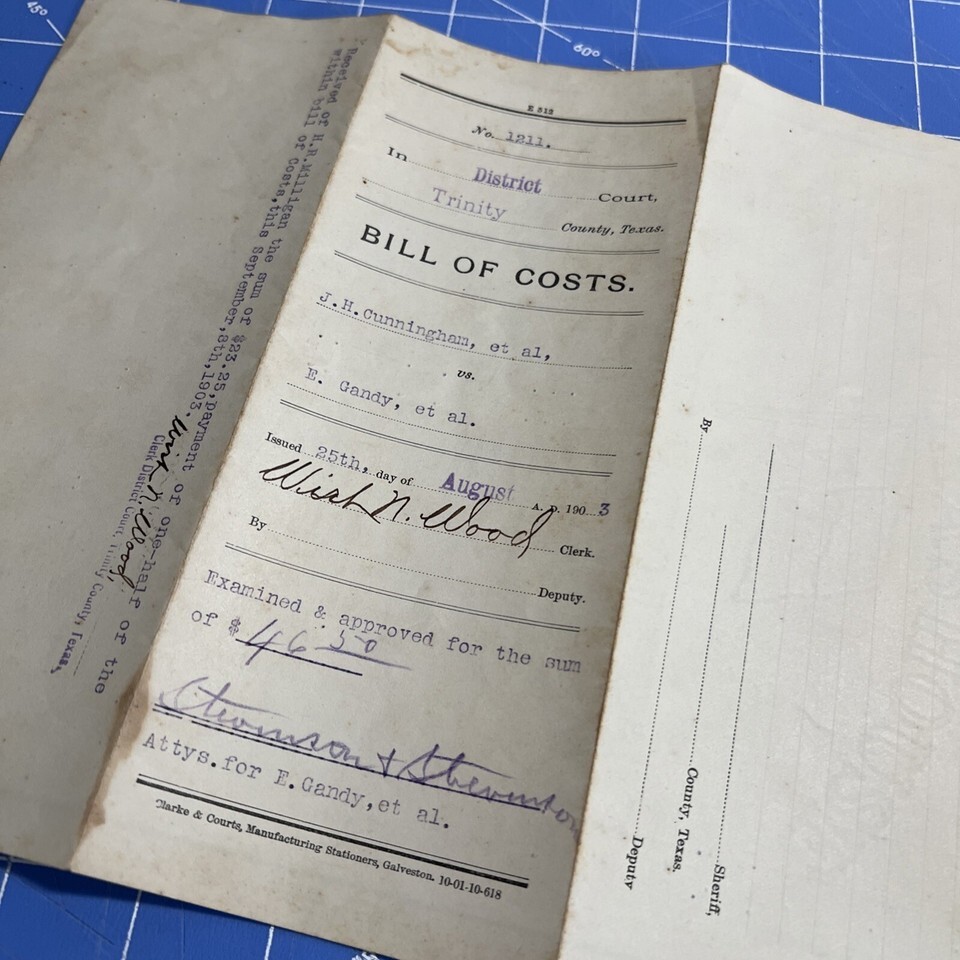 Received of H.R.Milligan the sum of $23.25,payment of one-half of the
within bill of Costs,this September,8th,1903.
Wish N. Wood,
Clerk District Court, Trinity County, Texas,
E 512
No. 1211.
In District Court,
Trinity County, Texas.
BILL OF COSTS.
J.H.Cunningham, et al,
vs.
E. Gandy, et al.
Issued 25th, day of August A. D. 190 3
Wish N. Wood Clerk.
By Deputy.
Examined & approved for the sum
of $ 46 50
Stevenson & Stevenson
Attys.for E.Gandy,et al.
Clarke & Courts, Manufacturing Stationers, Galveston. 10-01-10-618
Sheriff,
County, Texas.
By Deputy
45°
60°